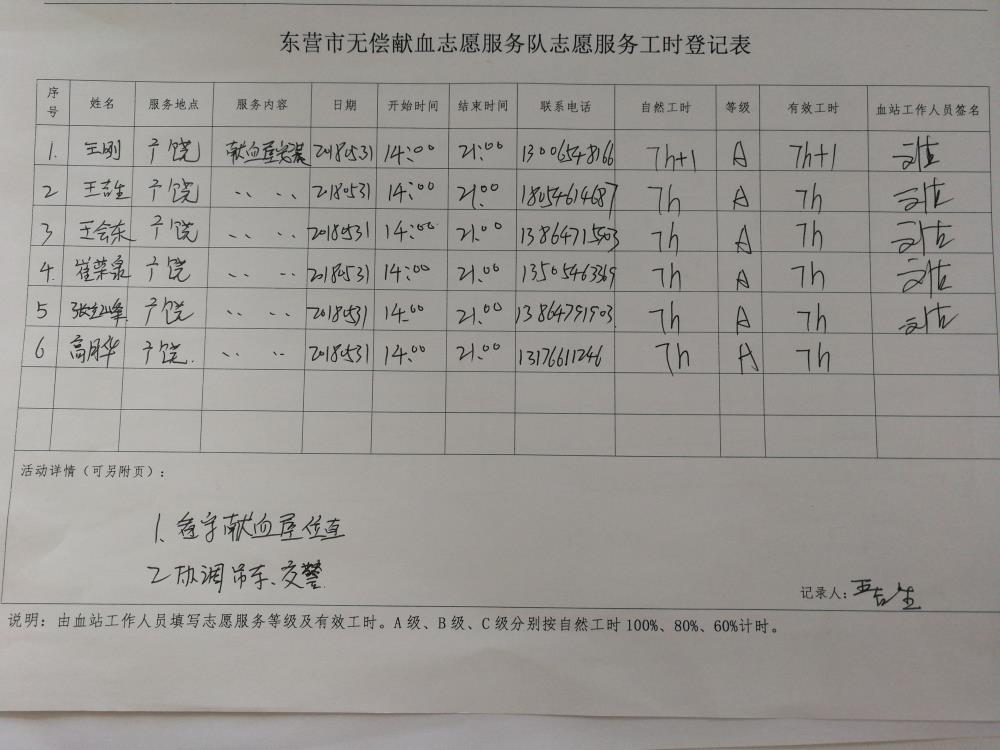 东营市无偿献血志愿服务队志愿服务工时登记表
序号 姓名 服务地点 服务内容 日期 开始时间 结束时间 联系电话 自然工时 等级 有效工时 血站工作人员签名
1. 王刚 广饶 献血屋安装 20180531 14:00 21:00 13006548166 7h+1 A 7h+1
2 王吉生 广饶 〃 〃 20180531 14:00 21:00 18054614687 7h A 7h
3 王会东 广饶 〃 〃 20180531 14:00 21:00 13864715503 7h A 7h
4. 崔荣泉 广饶 〃 〃 20180531 14:00 21:00 13505463369 7h A 7h
5 张红峰 广饶 〃 〃 20180531 14:00 21:00 13864791903 7h A 7h
6 高月华 广饶 〃 〃 20180531 14:00 21:00 13176611246 7h A 7h
活动详情（可另附页）：
1、 献血屋位置
2 协调吊车、交警
记录人：王吉生
说明：由血站工作人员填写志愿服务等级及有效工时。A级、B级、C级分别按自然工时100%、80%、60%计时。